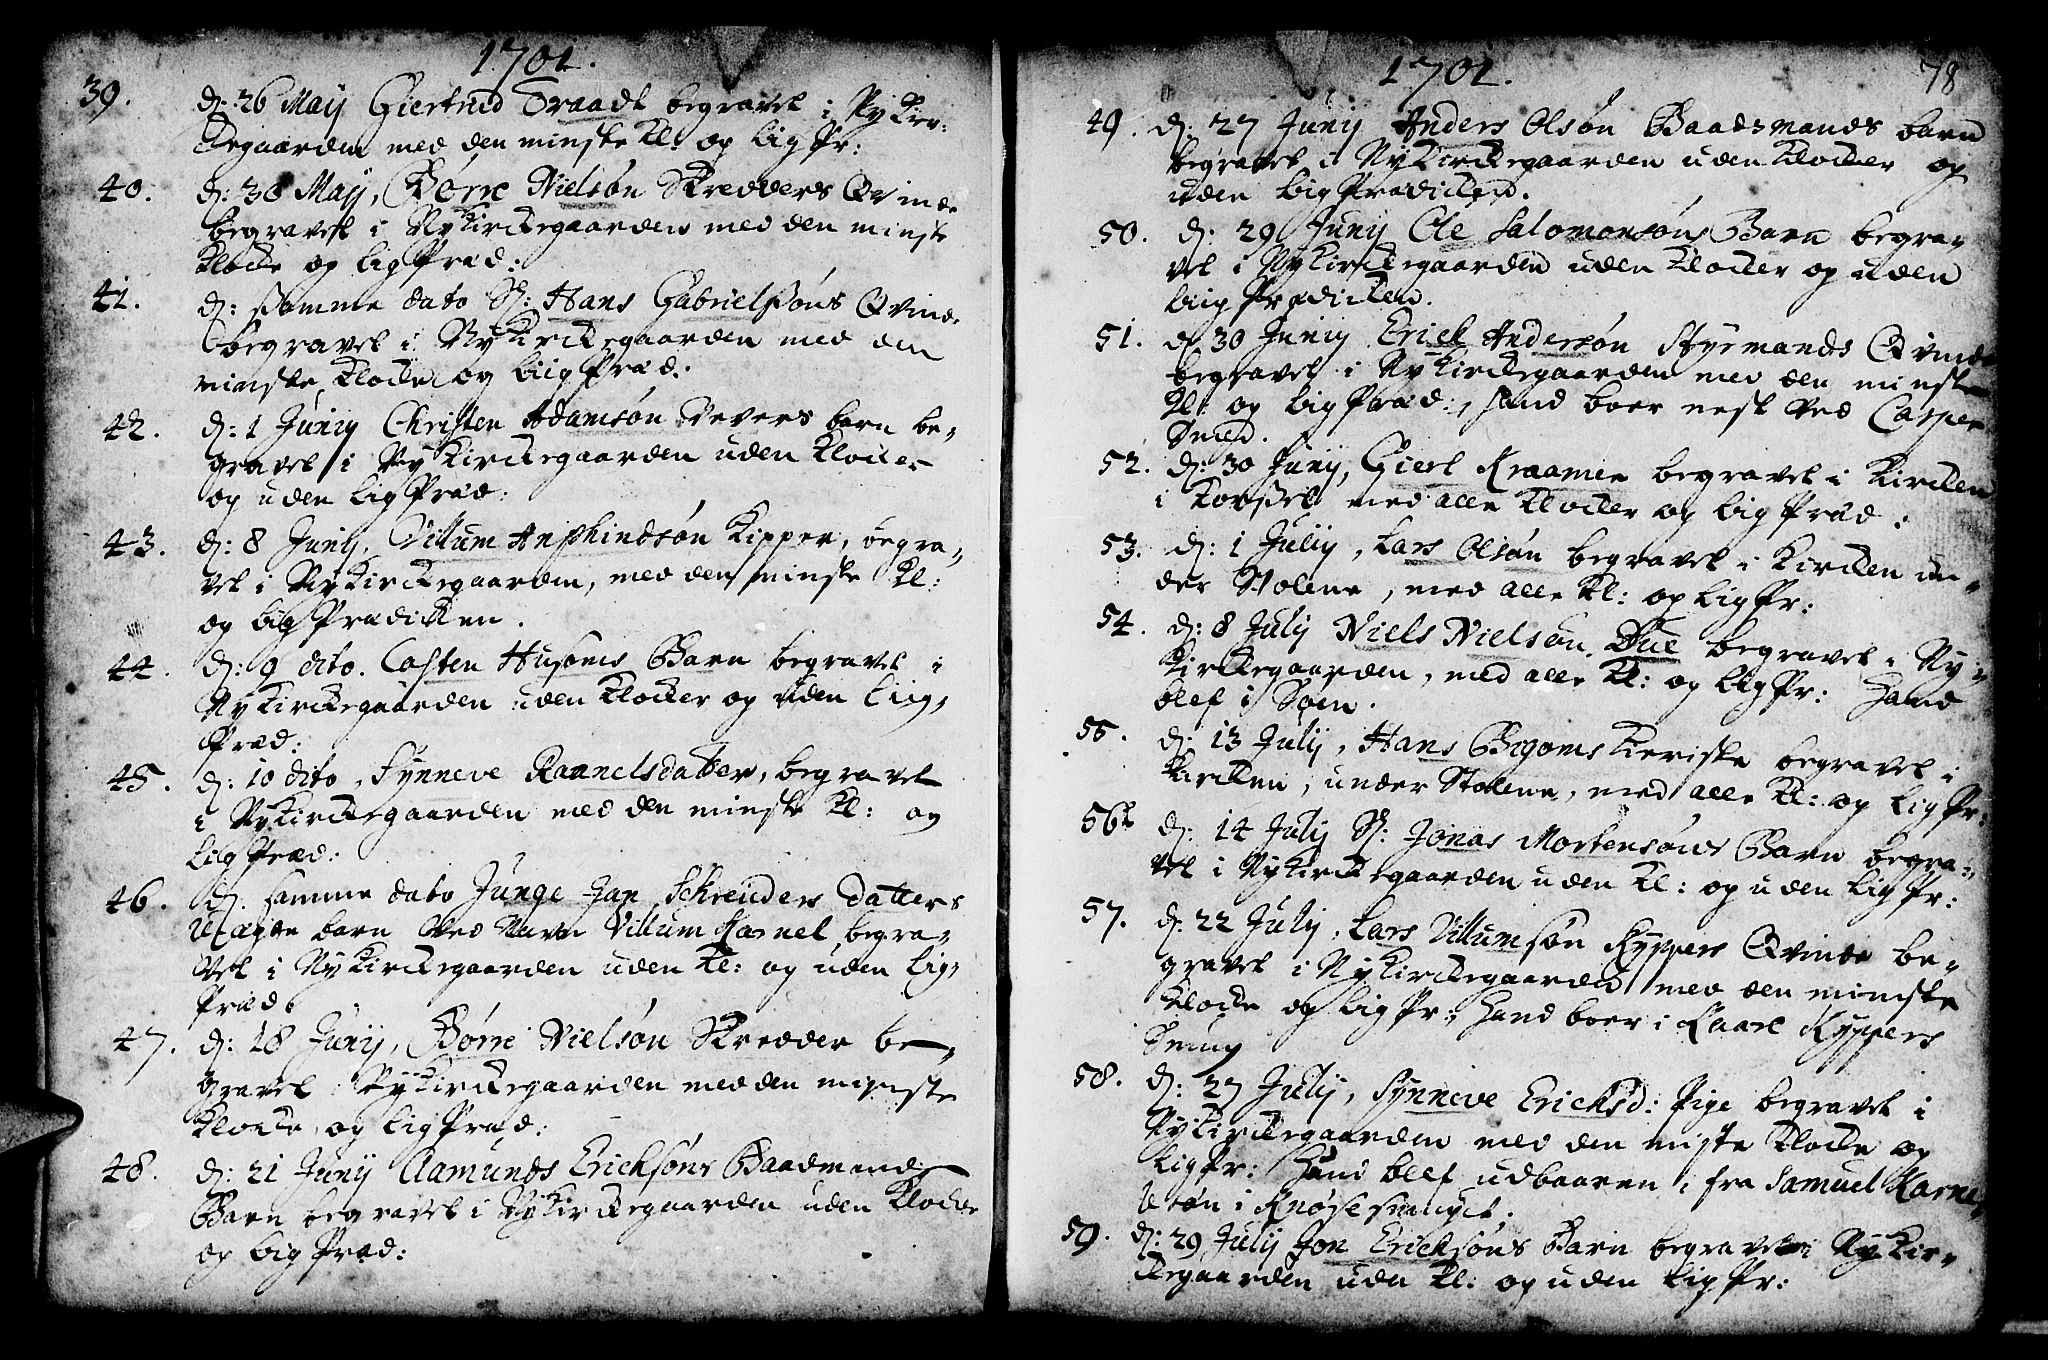 1701.
39. d: 26 Maij Giertrud Traadt begravet i Ny Kir,
ckegaarden med den minste Kl: og Lig Pr:
40. d: 30 Maij, Børre Nielsøn Skredders Qvinde
begravet i Ny Kirckegaarden med den minste
Klocke og Lig Præd:
41. d: samme dato Sl: Hans Gabrielsøns Qvinde
begravet i Ny Kirckegaarden med den
minste Klocke og Liig Præd:
42. d: 1 Junij Christen Adamsøn Vevers barn be,
gravet i Ny Kirckegaarden uden Klocker
og uden Lig Præd:
43. d: 8 Junij, Villum Anphindsøn Kipper, begra,
vet i Ny Kirckegaarden, med den minste Kl:
og Lig Prædicken.
44. d: 9 dito. Casten Husoms Barn begravet i
Ny Kirckegaarden uden Klocker og uden Liig,
Præd:
45. d: 10 dito, Synneve Rannelsdatter, begravet
i Ny Kirckegaarden med den minste Kl: og
Lig Præd:
46. d. samme dato Junge Jan Schreuders Datters
Uægte barn Ved Navn Villum Karnel, begra,
vet i Ny Kirckegaarden uden Kl: og uden Lig,
Præd:
47. d: 18 Junij, Børre Nielsøn Skredder be,
gravet i Ny Kirckegaarden med den minste
Klocke, og Lig Præd:
48. d: 21 Junij Aamunds Ericksøns Baadmands
Barn begravet i Ny Kirckegaarden uden Klocke
og Lig Præd:
1701. 78
49. d: 27 Junij Anders Olsøn Baadsmands barn
begravet i Ny Kirckegaarden uden Klocker og
uden Lig Prædicken.
50. d: 29 Junij Ole Salomonsøns Barn begra,
vet i Ny Kirckegaarden uden Klocker og uden
Liig Prædicken.
51. d 30 Junij Erick Andersøn Styrmands Qvinde
begravet i Ny Kirckegaarden med den minste
Kl: og Lig Præd:, hand boer nest Ved Casper
Smed.
52. d: 30 Junij, Giert Kraamer begravet i Kircken
i Korset med alle Klocker og Lig Præd:
53. d: 1 Julij, Lars Olsøn begravet i Kircken un,
der Stolene, med alle Kl: og Lig Pr:
54. d: 8 Julij Niels Nielsøn Due begravet i Ny,
Kirckegaarden, med alle Kl: og Lig Pr: Hand
blef i Søen.
55. d: 13 Julij, Hans Bigoms Kieriste begravet i
Kircken, under Stolene, med alle Kl: og Lig Pr:
56 d: 14 Julij Sl: Jonas Mortensøns Barn begra,
vet i Ny Kirckegaarden uden Kl: og uden Lig Pr:
57. d. 22 Julij, Lars Villumsøn Kyppers Qvinde be,
gravet i Ny Kirckegaarden med den minste
Klocke og Lig Pr: Hand boer i Kaare Kyppers
Smug
58. d: 27 Julij, Synneve Ericksd: Pige begravet i
Ny Kirckegaarden med den miste Klocke og
Lig Pr: Hand blef udbaaren i fra Samuel Karne,
Utøn i Knøsesmuget.
59. d: 29 Julij Jon Ericksøns Barn begravet i Ny Kir,
ckegaarden uden Kl: og uden Lig Pr: